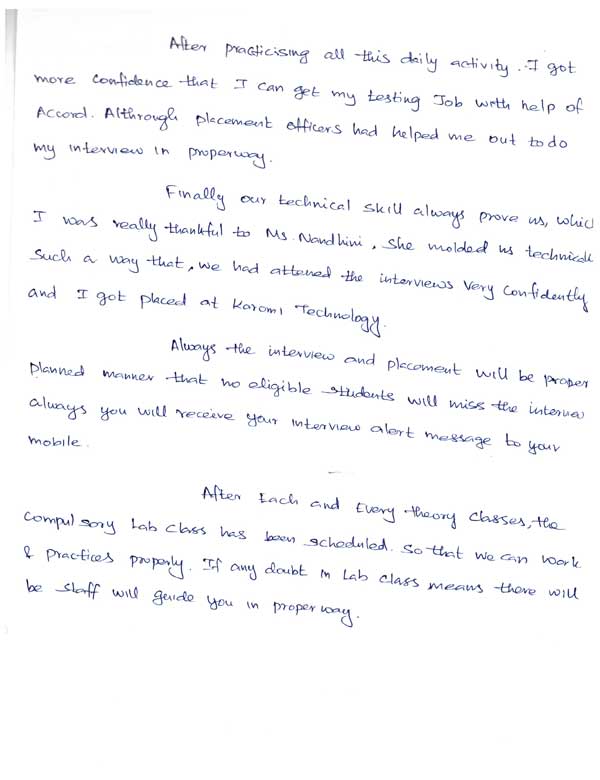 After practicising all this daily activity. I got
more confidence that I can get my testing Job with help of
Accord. Althrough placement officers had helped me out to do
my interview in properway.
Finally our technical skill always prove us, whic
I was really thankful to Ms. Nandhini, She molded us technicall
Such a way that, we had attened the interviews very confidently
and I got placed at Karomi Technology.
Always the interview and placement will be proper
planned manner that no eligible students will miss the interview
always you will receive your interview alert message to your
mobile.
After Each and Every theory classes, the
compulsory Lab class has been scheduled. So that we can work
& practices properly. If any doubt in Lab class means there will
be staff will guide you in proper way.